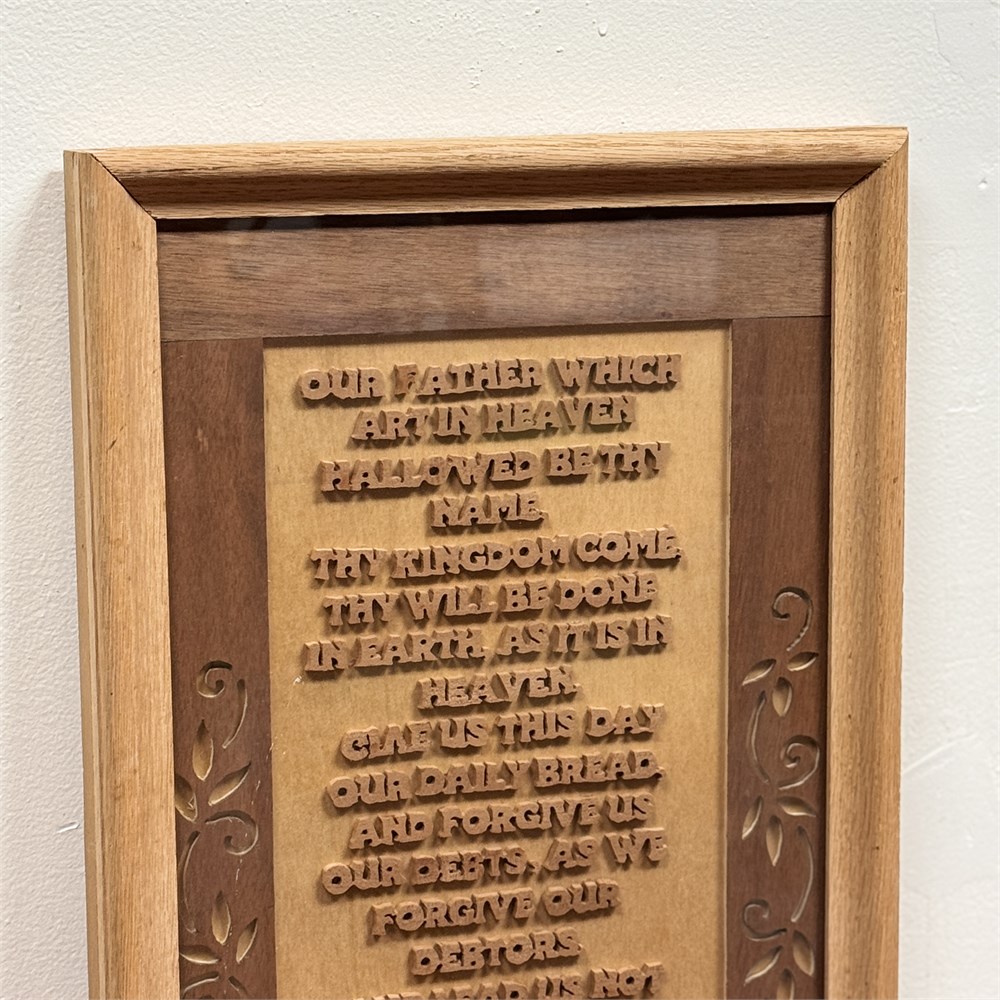 OUR FATHER WHICH
ART IN HEAVEN
HALLOWED BE THY
NAME.
THY KINGDOM COME.
THY WILL BE DONE
IN EARTH, AS IT IS IN
HEAVEN.
GIVE US THIS DAY
OUR DAILY BREAD.
AND FORGIVE US
OUR DEBTS, AS WE
FORGIVE OUR
DEBTORS.
AND LEAD US NOT